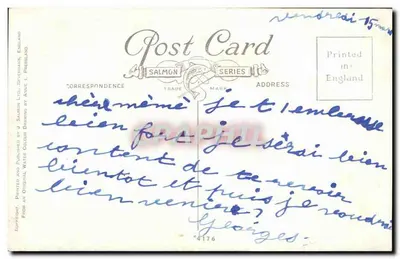 vendredi 15 mars
Post Card
SALMON SERIES
TRADE MARK
CORRESPONDENCE
ADDRESS
Printed
in
England
chère mémé je t'embrasse
bien fort je serai bien
content de te revoir
bientot et puis je voudrai
bien venire,
Georges.
4176
COPYRIGHT. PRINTED AND PUBLISHED BY J. SALMON LTD., SEVENOAKS, ENGLAND
FROM AN ORIGINAL WATER COLOUR DRAWING BY